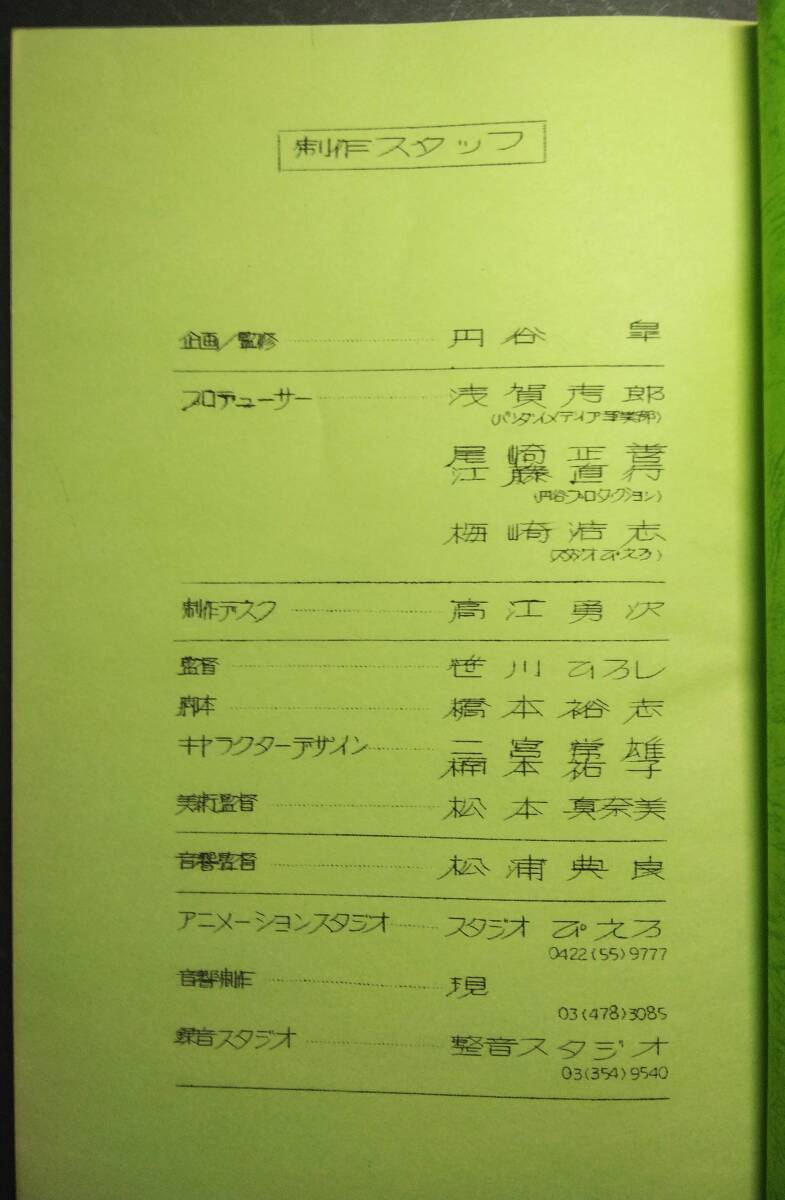 制作スタッフ
企画／監修 円谷 皐
プロデューサー 浅賀孝郎
(バンダイメディア事業部)
尾崎正善
江藤直行
(円谷プロダクション)
梅崎浩志
(スタジオぴえろ)
制作デスク 高江勇次
監督 笹川ひろし
脚本 橋本裕志
キャラクターデザイン 二宮常雄
楠本祐子
美術監督 松本真奈美
音響監督 松浦典良
アニメーションスタジオ スタジオ ぴえろ
0422(55)9777
音響制作 現
03(478)3085
録音スタジオ 整音スタジオ
03(354)9540